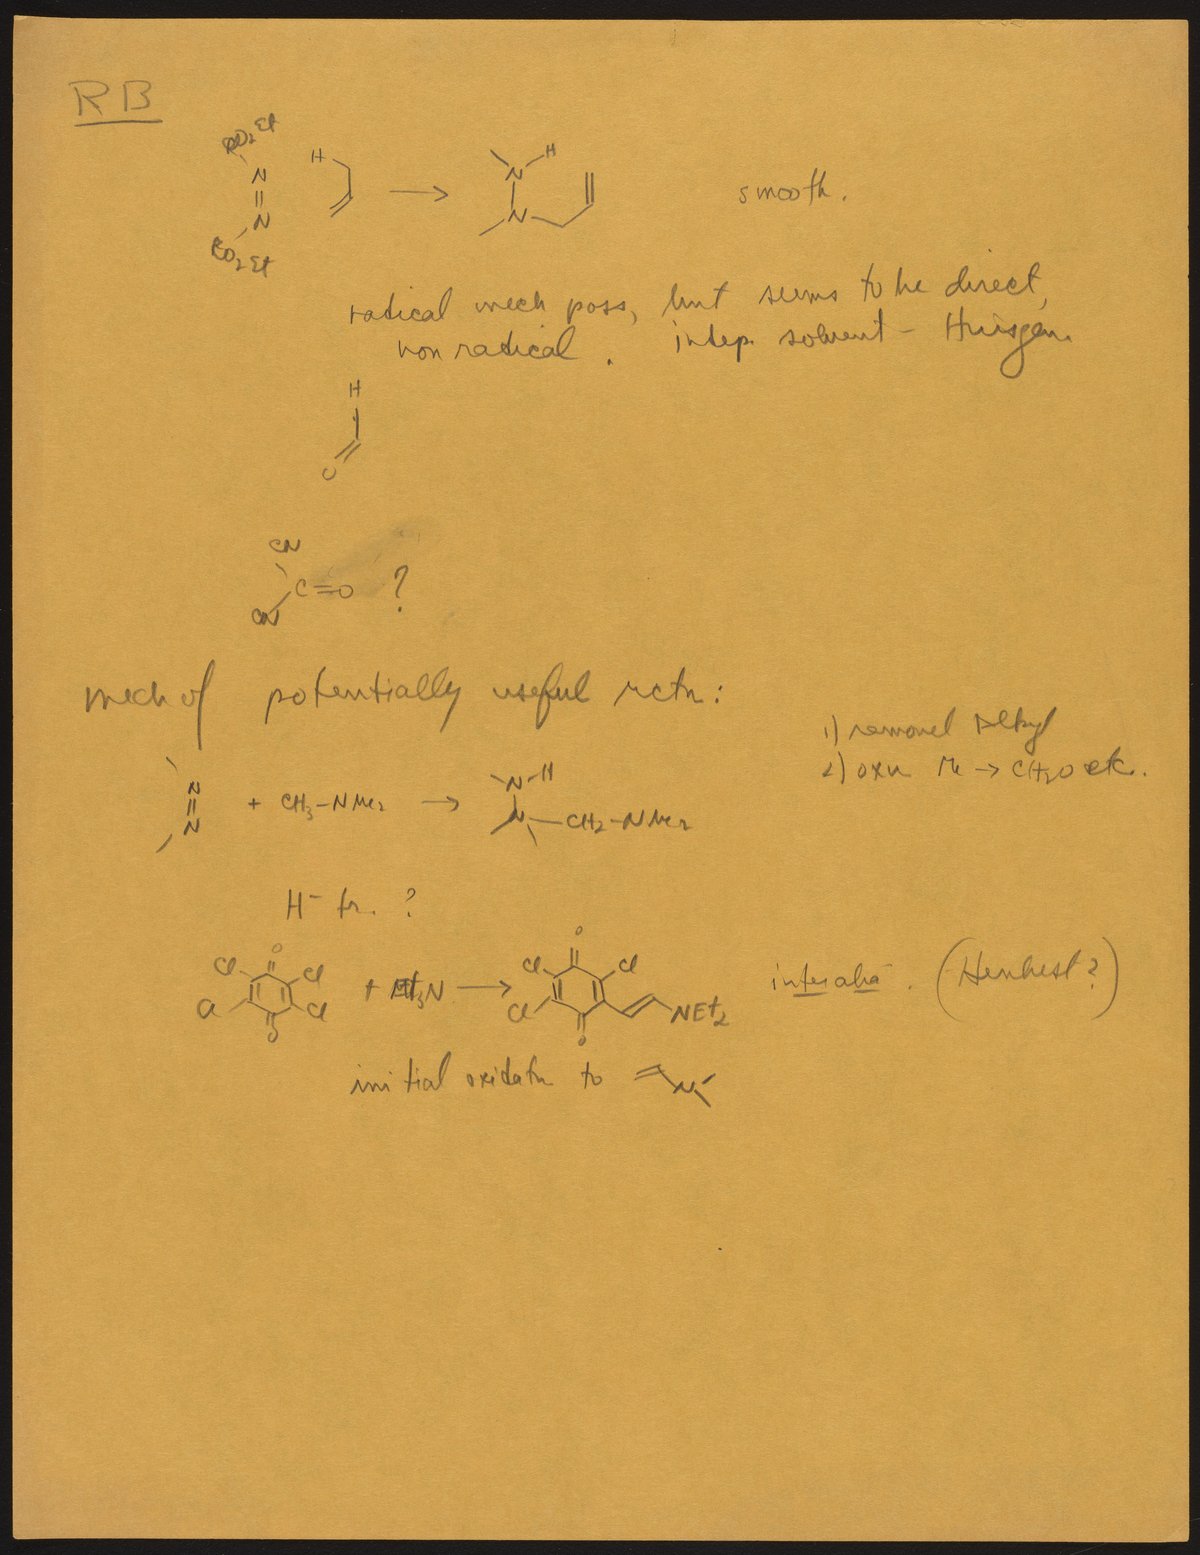 RB
CO₂Et
N
||
N
CO₂Et
H
→
N-H
N
smooth.
radical mech poss, but seems to be direct,
non radical. indep. solvent - Huisgen.
H
O
CN
C=O ?
CN
mech of potentially useful rctn:
1) removal alkyl
2) oxn Me → CH₂O etc.
N
||
N
+ CH₃-NMe₂ →
N-H
N-CH₂-NMe₂
H⁻ tr. ?
O
Cl Cl
Cl Cl
O
+ Et₃N →
O
Cl Cl
Cl NEt₂
O
inter alia. (Henbest?)
initial oxidatn to
N